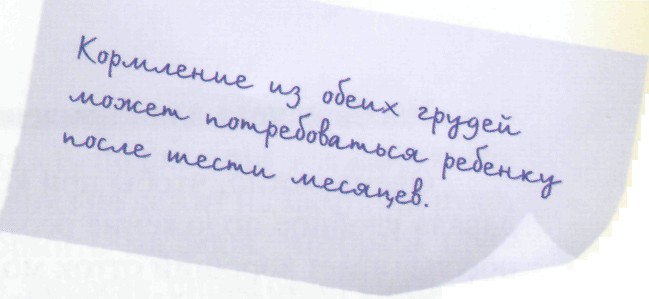 Кормление из обеих грудей
может потребоваться ребенку
после шести месяцев.